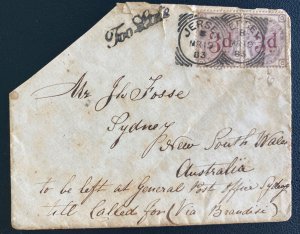 Too Late
JERSEY
MR 12
83
3d
Mr. Jh Fosse
Sydney
New South Wales
Australia
to be left at General Post Office Sydney
till called for (Via Brandisi)